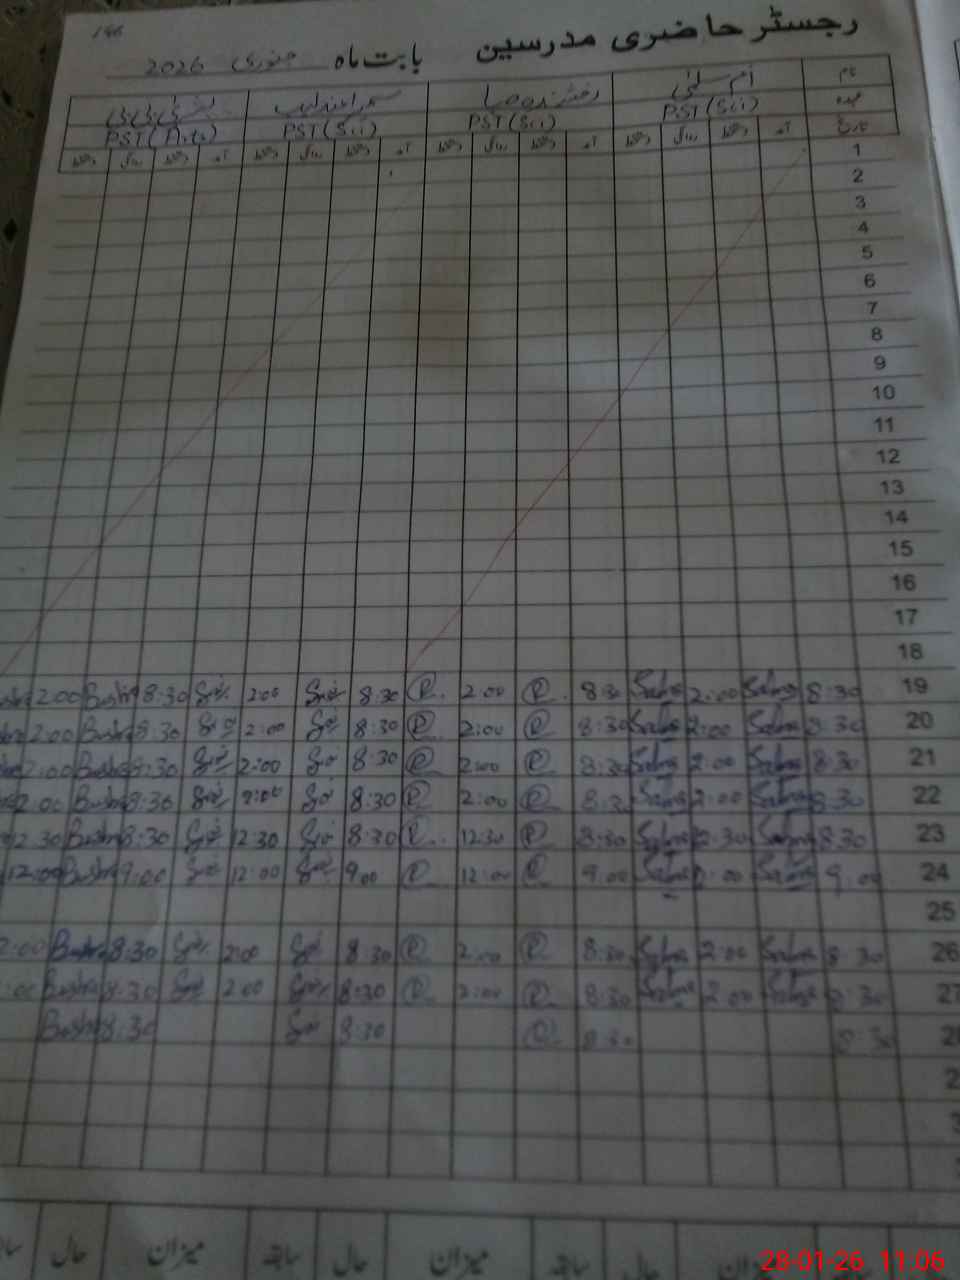 186
رجسٹر حاضری مدرسین بابت ماہ جنوری 2026
نام اُم سلمیٰ رخشندہ صبا بشریٰ بی بی
عہدہ PST(Sci) PST(Sci) PST(Sci) PST(Arts)
تاریخ آمد دستخط روانگی دستخط آمد دستخط روانگی دستخط آمد دستخط روانگی دستخط آمد دستخط روانگی دستخط
1
2
3
4
5
6
7
8
9
10
11
12
13
14
15
16
17
18
19 8:30 Salma 2:00 Salma 8:30 R 2:00 R 8:30 2:00 8:30 Bushra 2:00
20 8:30 Salma 2:00 Salma 8:30 R 2:00 R 8:30 2:00 8:30 Bushra 2:00
21 8:30 Salma 2:00 Salma 8:30 R 2:00 R 8:30 2:00 8:30 Bushra 2:00
22 8:30 Salma 2:00 Salma 8:30 R 2:00 R 8:30 2:00 8:30 Bushra 2:00
23 8:30 Salma 2:30 Salma 8:30 R 12:30 R 8:30 12:30 8:30 Bushra 12:30
24 9:00 Salma :00 Salma 9:00 R 12:00 R 9:00 12:00 9:00 Bushra 12:00
25
26 8:30 Salma 2:00 Salma 8:30 R 2:00 R 8:30 2:00 8:30 Bushra 2:00
27 8:30 Salma 2:00 Salma 8:30 R 2:00 R 8:30 2:00 8:30 Bushra :00
28 8:30 8:30 R 8:30 8:30 Bushra
میزان حال سابقہ میزان حال سابقہ میزان حال
28-01-26 11:06